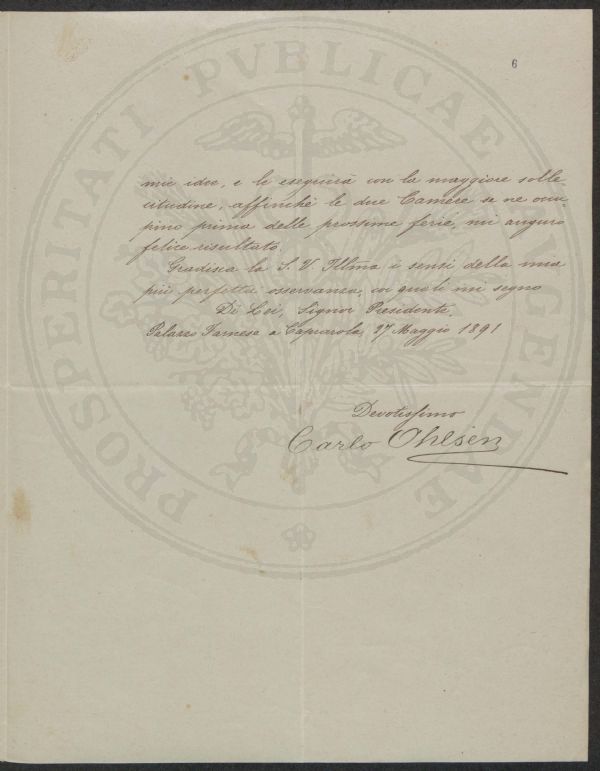 6
PROSPERITATI PVBLICAE AVGENDAE
mie idee, e le eseguirà con la maggiore solle-
citudine, affinché le due Camere se ne occu-
pino prima delle prossime ferie, mi auguro
felice risultato.
Gradisca la S. V. Illma i sensi della mia
più perfetta osservanza, co' quali mi segno
Di Lei, Signor Presidente,
Palazzo Farnese a Caprarola, 27 Maggio 1891
Devotissimo
Carlo Ohlsen